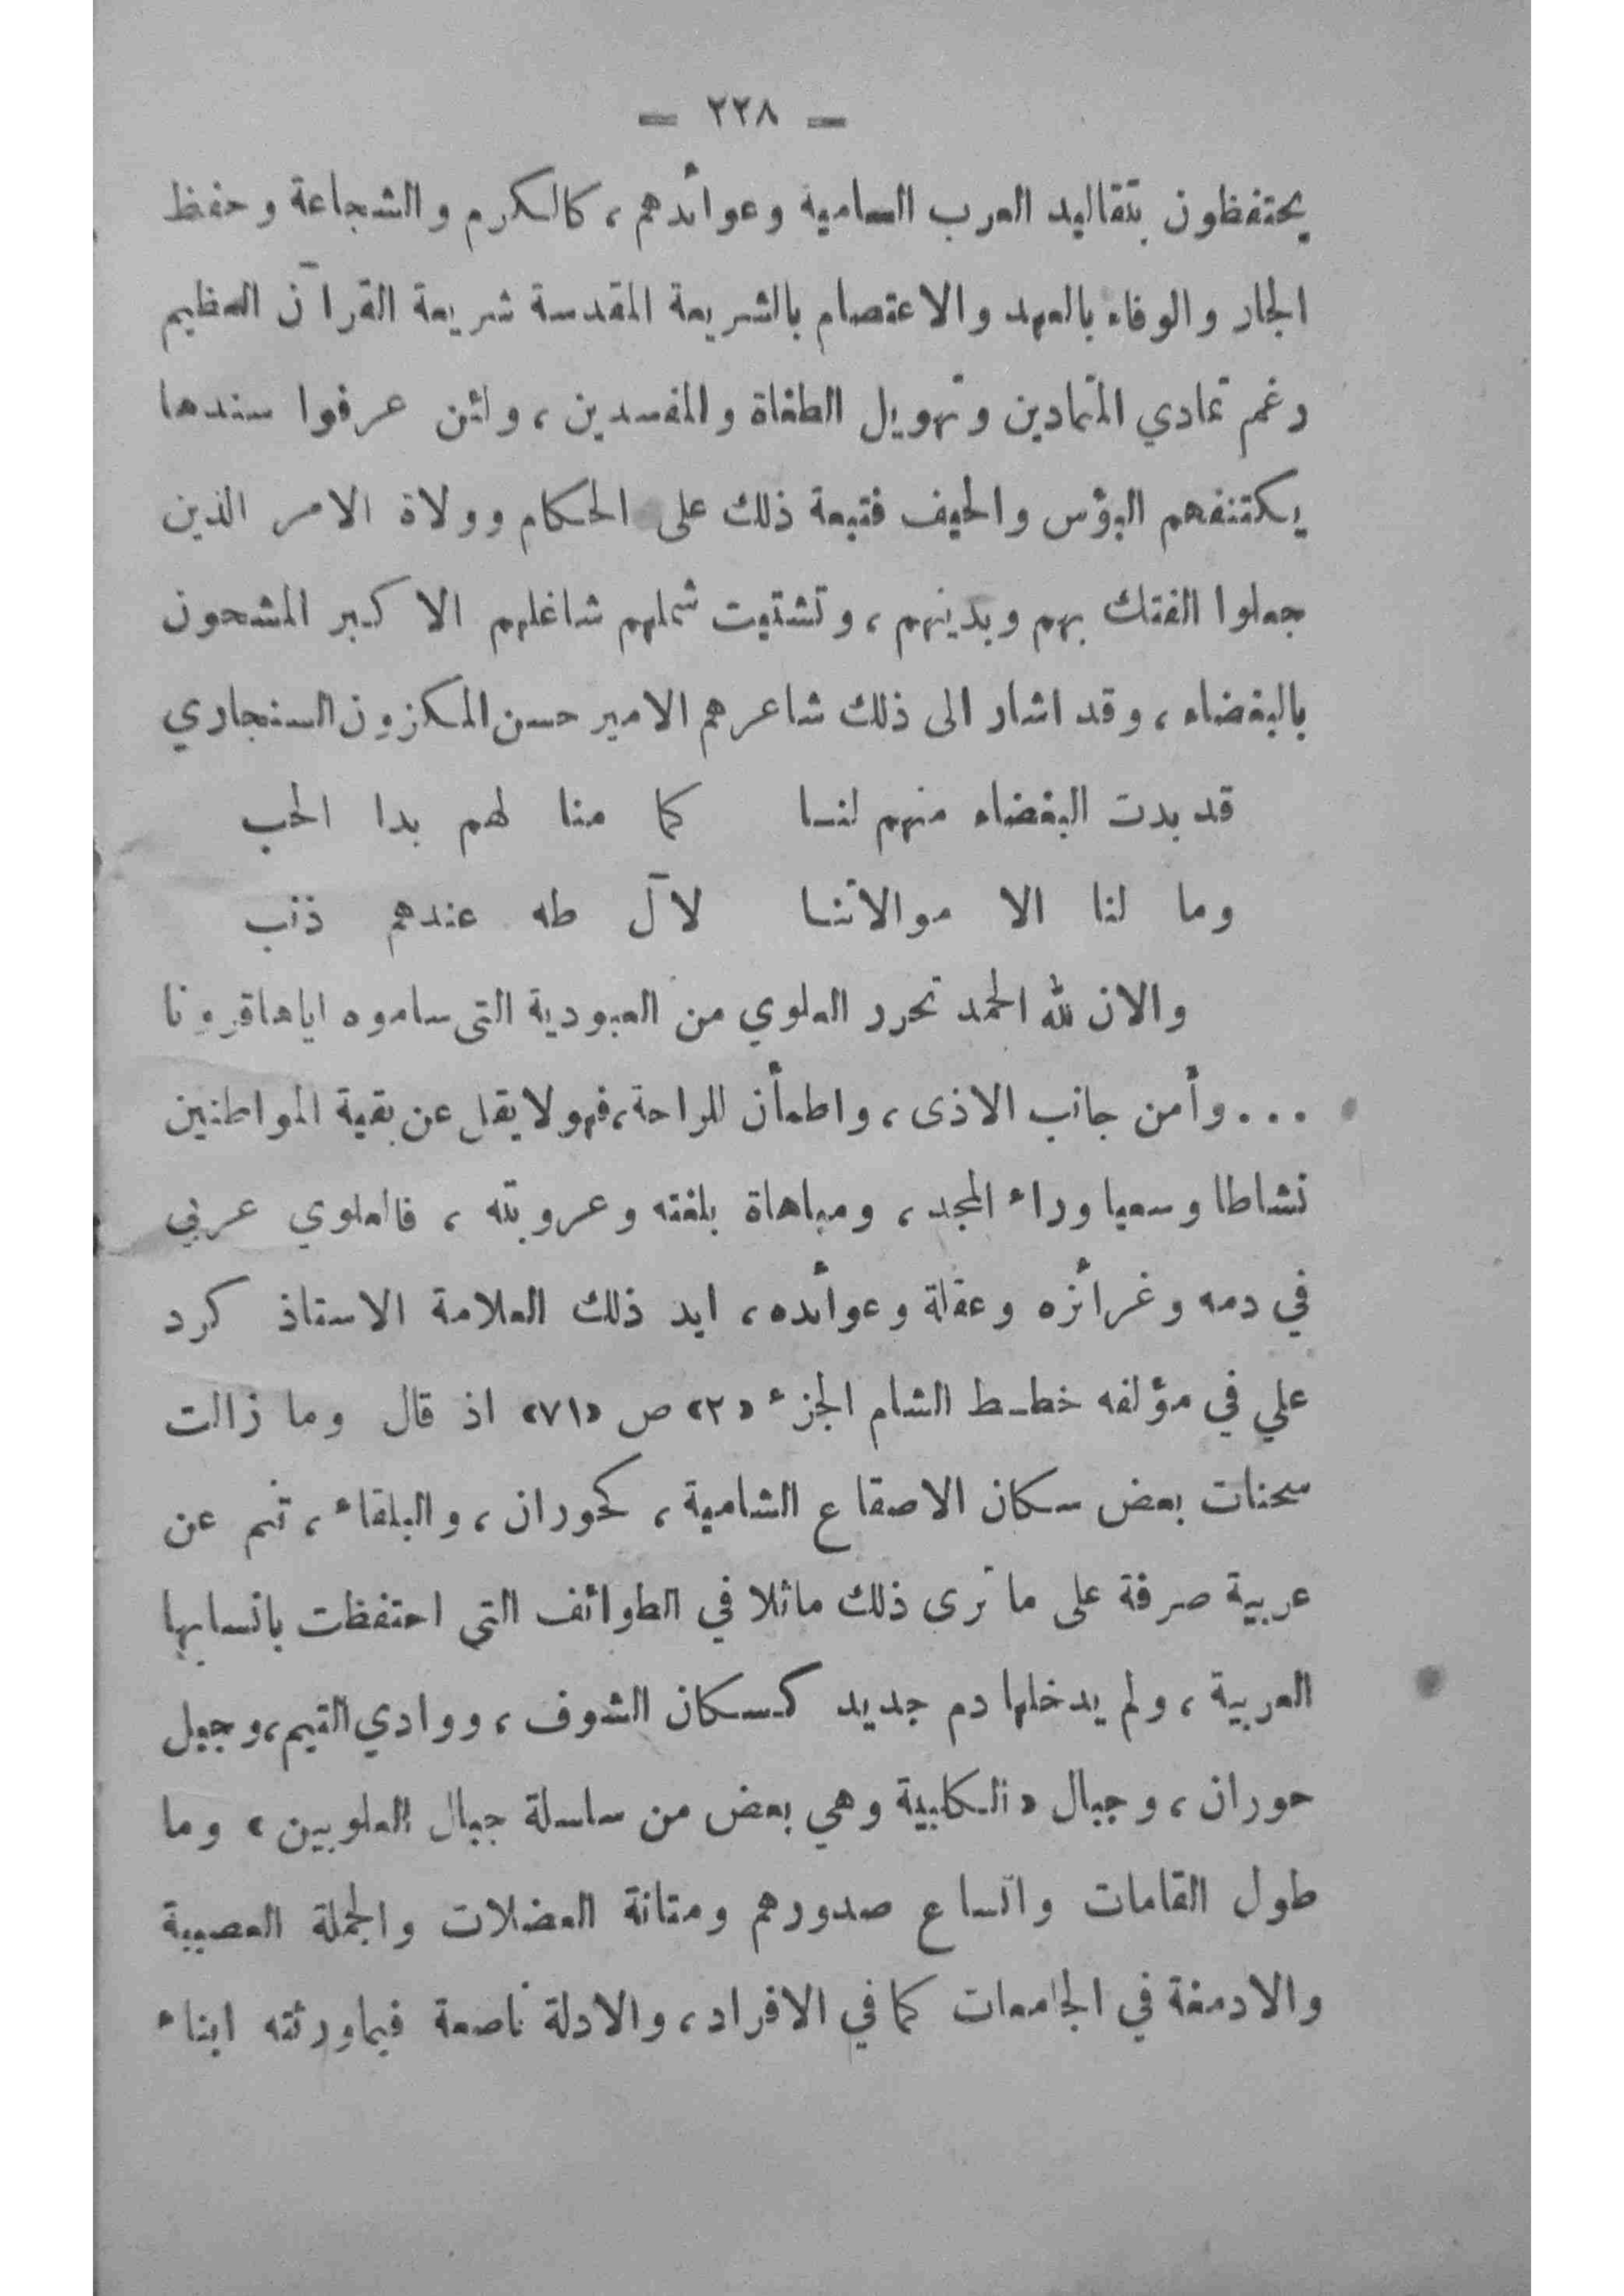 — ٢٢٨ —
يحتفظون بتقاليد العرب السامية وعوائدهم، كالكرم والشجاعة وحفظ
الجار والوفاء بالعهد والاعتصام بالشريعة المقدسة شريعة القرآن العظيم
رغم تمادي المتمادين وتهويل الطغاة والمفسدين، ولئن عرفوا سندها
يكتنفهم البؤس والحيف فتبعة ذلك على الحكام وولاة الامر الذين
جعلوا الفتك بهم وبدينهم، وتشتيت شملهم شاغلهم الاكبر المشحون
بالبغضاء، وقد اشار الى ذلك شاعرهم الامير حسن المكزون السنجاري
قد بدت البغضاء منهم لنا كما منا لهم بدا الحب
وما لنا الا موالاتنا لآل طه عندهم ذنب
والان لله الحمد تحرر العلوي من العبودية التي ساموه اياها قرونا
... وأمن جانب الاذى، واطمأن للراحة، فهو لا يقل عن بقية المواطنين
نشاطا وسعيا وراء المجد، ومباهاة بلغته وعروبته، فالعلوي عربي
في دمه وغرائزه وعقلة وعوائده، ايد ذلك العلامة الاستاذ كرد
علي في مؤلفه خطط الشام الجزء «٢» ص «٧١» اذ قال وما زالت
سحنات بعض سكان الاصقاع الشامية، كحوران، والبلقاء، تنم عن
عربية صرفة على ما نرى ذلك ماثلا في الطوائف التي احتفظت بانسابها
العربية، ولم يدخلها دم جديد كسكان الشوف، ووادي التيم، وجبل
حوران، وجبال «الكلبية وهي بعض من سلسلة جبال العلويين» وما
طول القامات واتساع صدورهم ومتانة العضلات والجملة العصبية
والادمغة في الجامعات كما في الافراد، والادلة ناصعة فيما ورثته ابناء